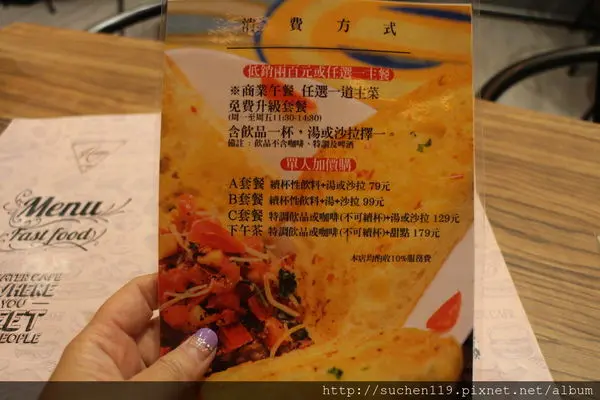 消費方式
低銷兩百元或任選一主餐
※商業午餐 任選一道主菜
免費升級套餐
(周一至周五11:30-14:30)
含飲品一杯，湯或沙拉擇一。
備註：飲品不含咖啡、特調及啤酒
單人加價購
A套餐 續杯性飲料+湯或沙拉 79元
B套餐 續杯性飲料+湯或沙拉 99元
C套餐 特調飲品或咖啡(不可續杯)+湯或沙拉 129元
下午茶 特調飲品或咖啡(不可續杯)+甜點 179元
本店均酌收10%服務費
Menu
Fast food
PEOPLE
http://suchen119.pixnet.net/album